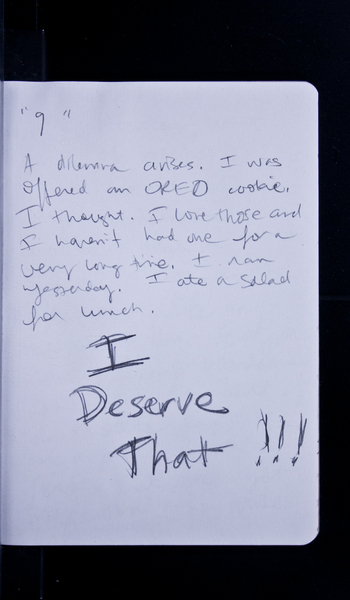 "9"
A dilemma arises. I was
offered an OREO cookie.
I thought. I love those and
I haven't had one for a
very long time. I ran
yesterday. I ate a salad
for lunch.
I
Deserve
That !!!